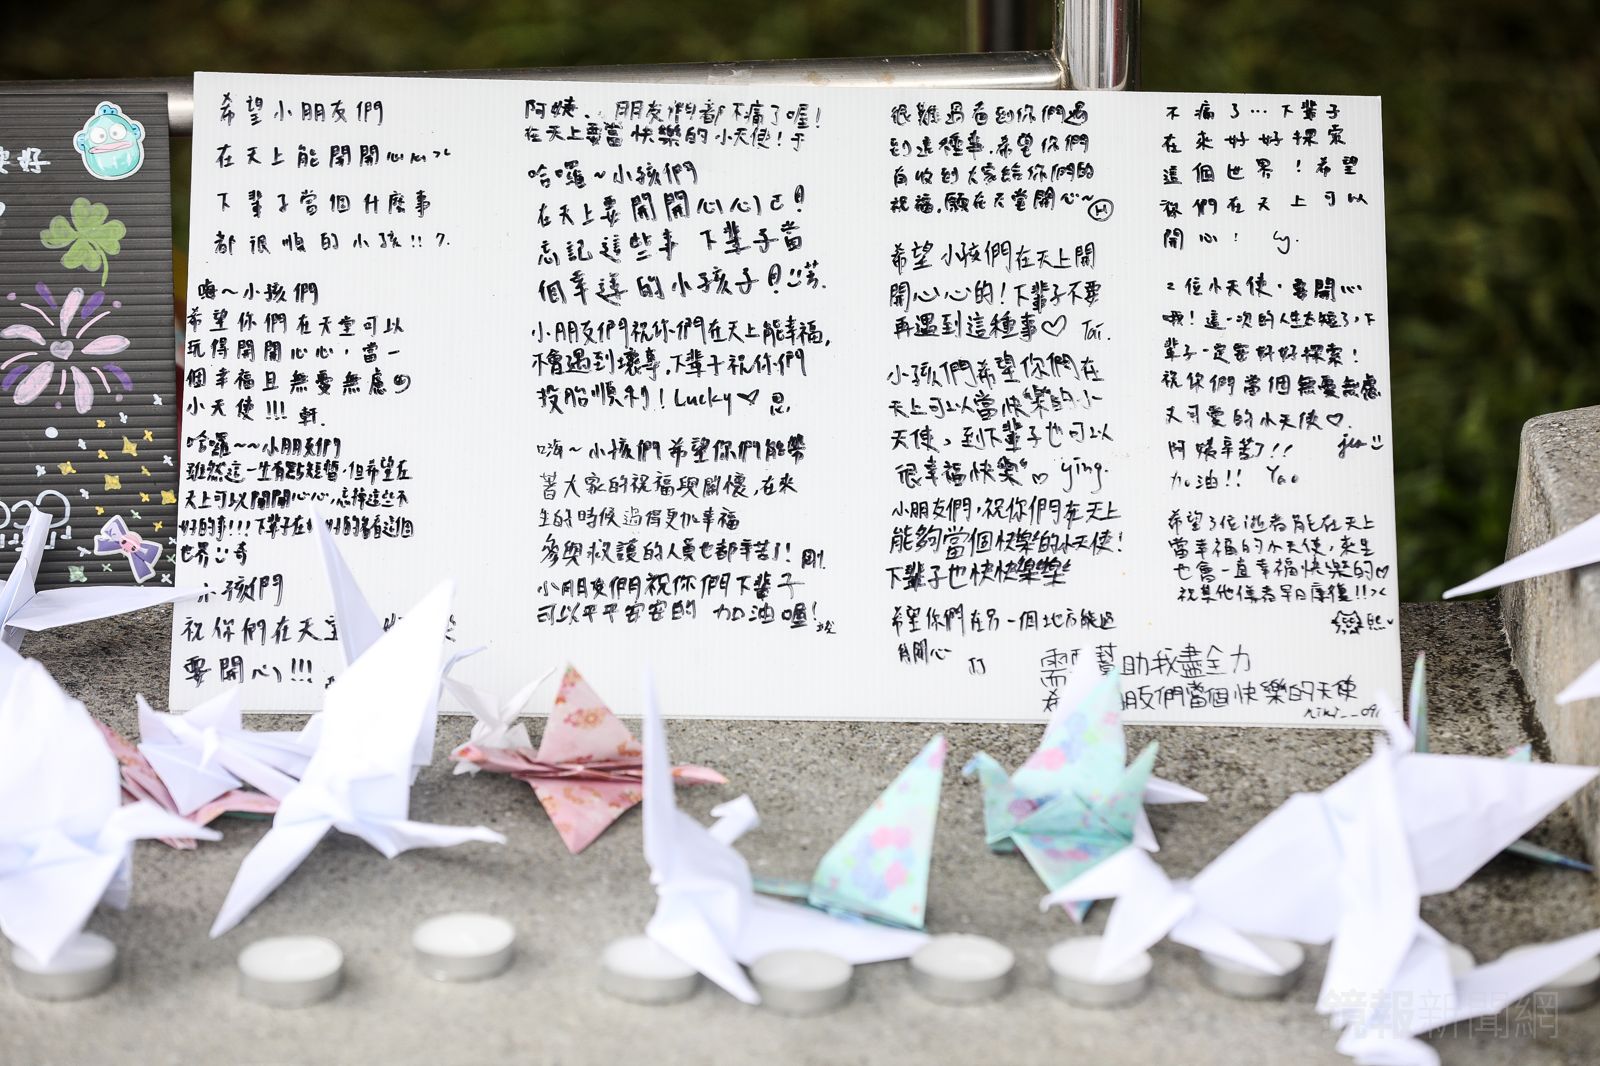 安好
希望小朋友們
在天上能開開心心><
下輩子當個什麼事
都很順的小孩!! 7.
嗨~小孩們
希望你們在天堂可以
玩得開開心心,當一
個幸福且無憂無慮の
小天使!!! 軒.
哈囉~~小朋友們
雖然這一生有點短暫,但希望在
天上可以開開心心,忘掉這些不
好的事!!!下輩子在
世界 奇
小孩們
祝你們在天
要開心!!!
阿姨、朋友們都不痛了喔!
在天上要當快樂的小天使!于
哈囉~小孩們
在天上要開開心心
忘記這些事 下輩子當
個幸運的小孩子
小朋友們祝你們在天上能幸福,
不會遇到壞事,下輩子祝你們
投胎順利!Lucky♡ 恩.
嗨~小孩們希望你們能帶
著大家的祝福與關懷,在來
生的時候過得更加幸福
參與救護的人員也都辛苦了! 剛.
小朋友們祝你們下輩子
可以平平安安的 加油喔!
很難過看到你們遇
到這種事,希望你們
有收到大家給你們的
祝福,願在天堂開心~ H
希望小孩們在天上開
開心心的!下輩子不要
再遇到這種事♡ Tai.
小孩們希望你們在
天上可以當快樂的小
天使,到下輩子也可以
很幸福快樂♡ ying.
小朋友們,祝你們在天上
能夠當個快樂的小天使!
下輩子也快快樂樂
希望你們在另一個地方能過
開心 JJ
助我盡全力
朋友們當個快樂的天使
不痛了…下輩子
在來好好探索
這個世界!希望
祢們在天上可以
開心!
2位小天使,要開心
哦!這一次的人生太短了,下
輩子一定要好好探索!
祝你們當個無憂無慮
又可愛的小天使♡
阿姨辛苦了!!
加油!! Yao
希望3位逝者能在天上
當幸福的小天使,來生
也會一直幸福快樂的♡
祝其他傷者早日康復!!><
熙
鏡報新聞網